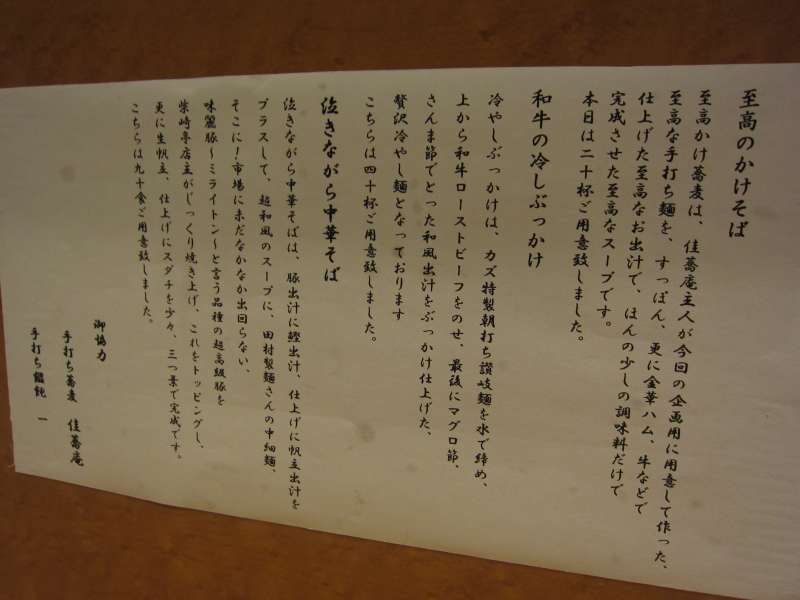 至高のかけそば
至高かけ蕎麦は、佳蕎庵主人が今回の企画用に用意して作った、
至高な手打ち麺を、すっぽん、更に金華ハム、牛などで
仕上げた至高なお出汁で、ほんの少しの調味料だけで
完成させた至高なスープです。
本日は二十杯ご用意致しました。
和牛の冷しぶっかけ
冷やしぶっかけは、カズ特製朝打ち讃岐麺を水で締め、
上から和牛ローストビーフをのせ、最後にマグロ節、
さんま節でとった和風出汁をぶっかけ仕上げた、
贅沢冷やし麺となっております
こちらは四十杯ご用意致しました。
泣きながら中華そば
泣きながら中華そばは、豚出汁に鰹出汁、仕上げに帆立出汁を
プラスして、超和風のスープに、田村製麺さんの中細麺、
そこに!市場に未だなかなか出回らない、
味麗豚~ミライトン~と言う品種の超高級豚を
柴崎亭店主がじっくり焼き上げ、これをトッピングし、
更に生帆立、仕上げにスダチを少々、三つ葉で完成です。
こちらは九十食ご用意致しました。
御協力
手打ち蕎麦 佳蕎庵
手打ち饂飩 一